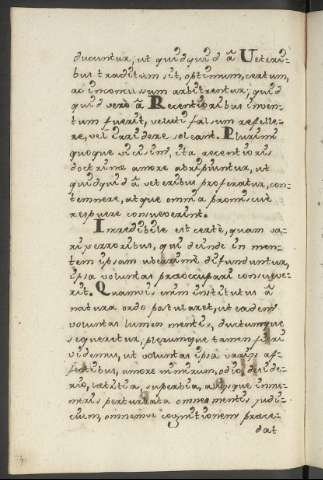 ducuntur, ut quidquid à Veteri-
bus traditum sit, optimum, certum,
ac inconcussum arbitrentur; quid
quid vero à Recentioribus inven-
tum fuerit, veluti falsum refelle-
re, vel irridere soleant. Plurimi
quoque vicissim, ita recentioris
doctrinæ amore abripiuntur, ut
quidquid à veteribus proferatur, con-
temnere, atque omnia promiscue
respuere consueverint.
Incredibile est certè, quam va-
ri erroribus, qui deinde in men-
tem ipsam uberrime difunduntur,
ipsa voluntas præoccupari consueve-
rit. Quamvis enim institutus à
natura ordo postularet, ut eadem
voluntas lumen mentis, ductumque
sequeretur, plerumque tamen fieri
videmus, ut voluntas ipsa variis af-
fectibus, amore nimirum, odio, deside-
rio, lætitia, superbia, aliisque innu-
meris perturbata omne mentis judi-
cium, omnemve cognitionem præce-
dat